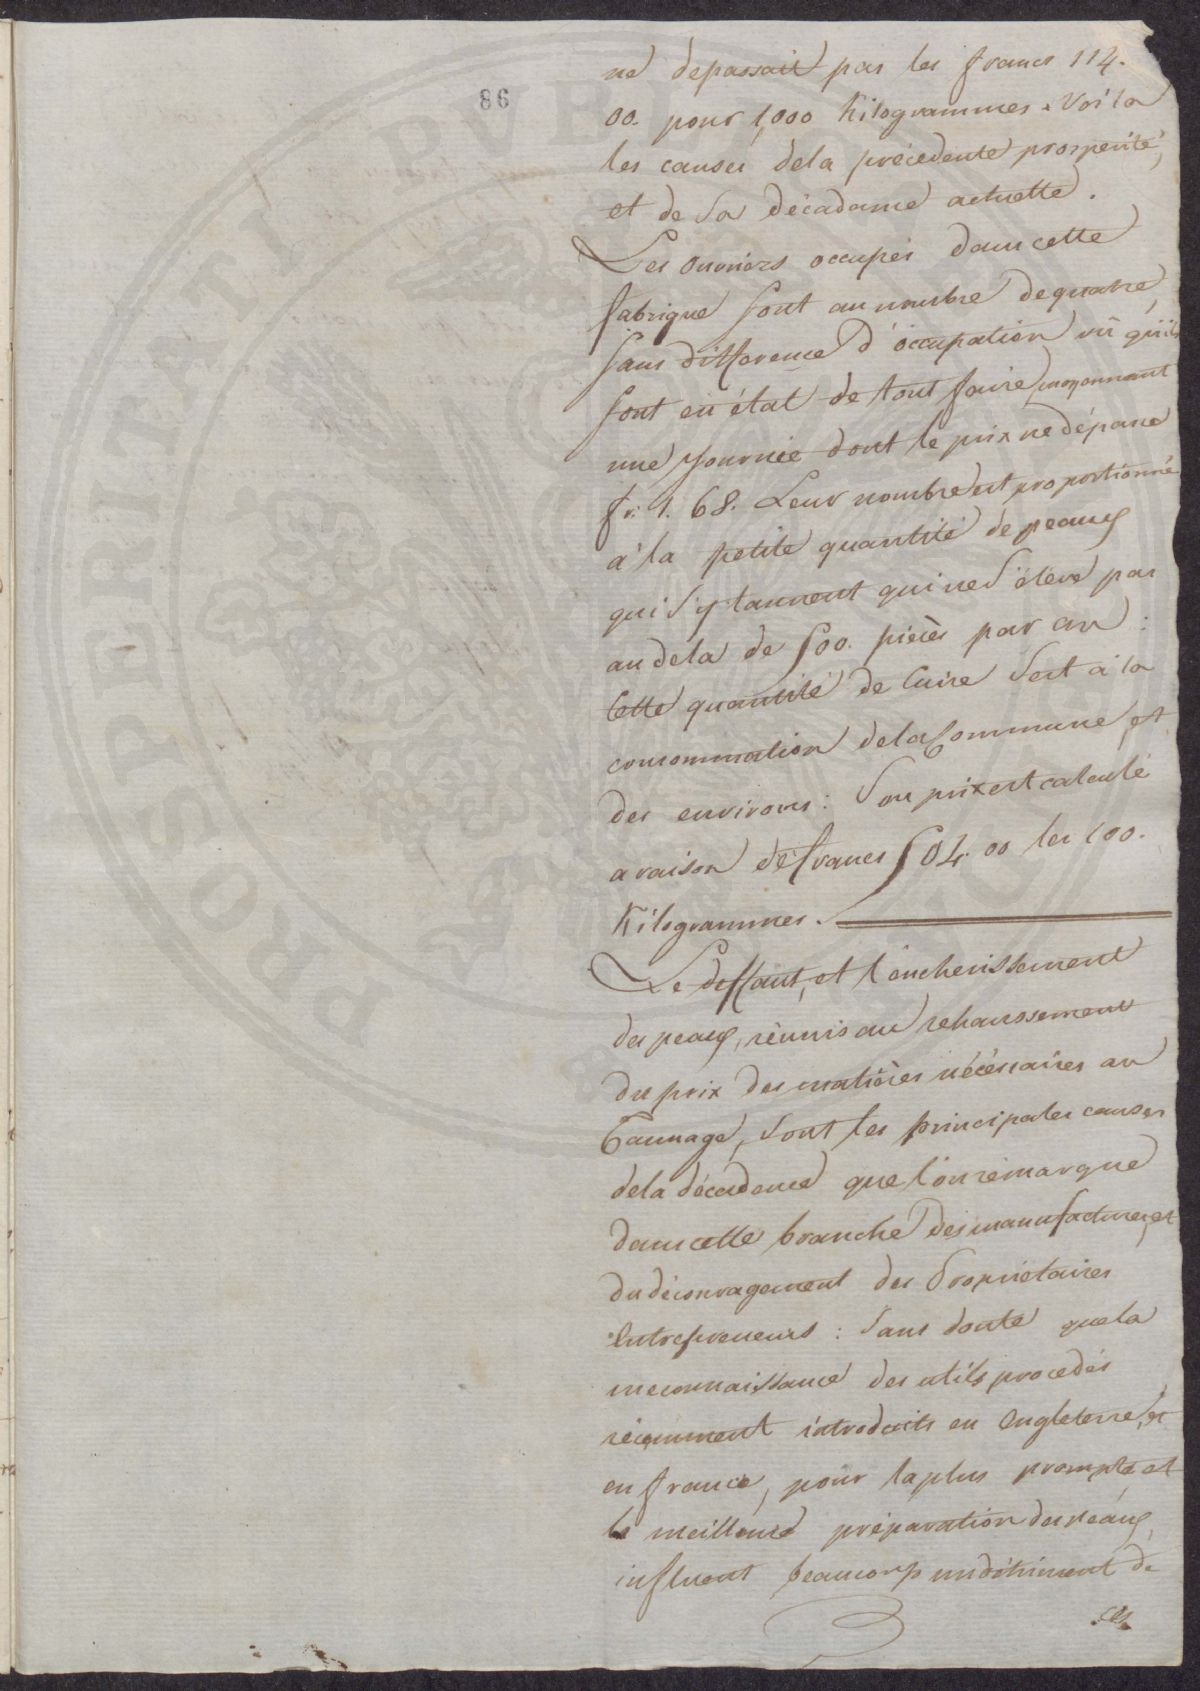 86
ne depassait pas les francs 114.
00. pour 1,000 Kilogrammes. Voila
les causes dela précedente prosperité,
et de sa décadanse actuelle.
Les ouvriers occupés dans cette
fabrique sont au nombre de quatre,
sans difference d'occupation vû qu'ils
sont en état de tout faire, moyennant
une journée dont le prix ne dépasse
fr: 1. 68. Leur nombre est proportionné
à la petite quantité de peaux
qui s'y tannent qui ne s'élève pas
au dela de 500. pieces par an :
Cette quantité de Cuire sert à la
consommation dela Commune, et
des environs : son prix est calculé
a raison de francs 504. 00 les 100.
Kilogrammes.
Le deffaut, et l'encherissement
des peaux, réunis au rehaussement
du prix des matières nécéssaires au
Tannage, sont les principales causes
dela décadence que l'on rémarque
dans cette branche des manufactures, et
du découragement des Propriétaires
Entrepreneurs : sans doute que la
meconnaissance des utils procedés
récemment introduits en Engleterre, et
en france, pour la plus prompte, et
la meilleure préparation des peaux,
influent beaucoup au détriment de
ces
PUBLI